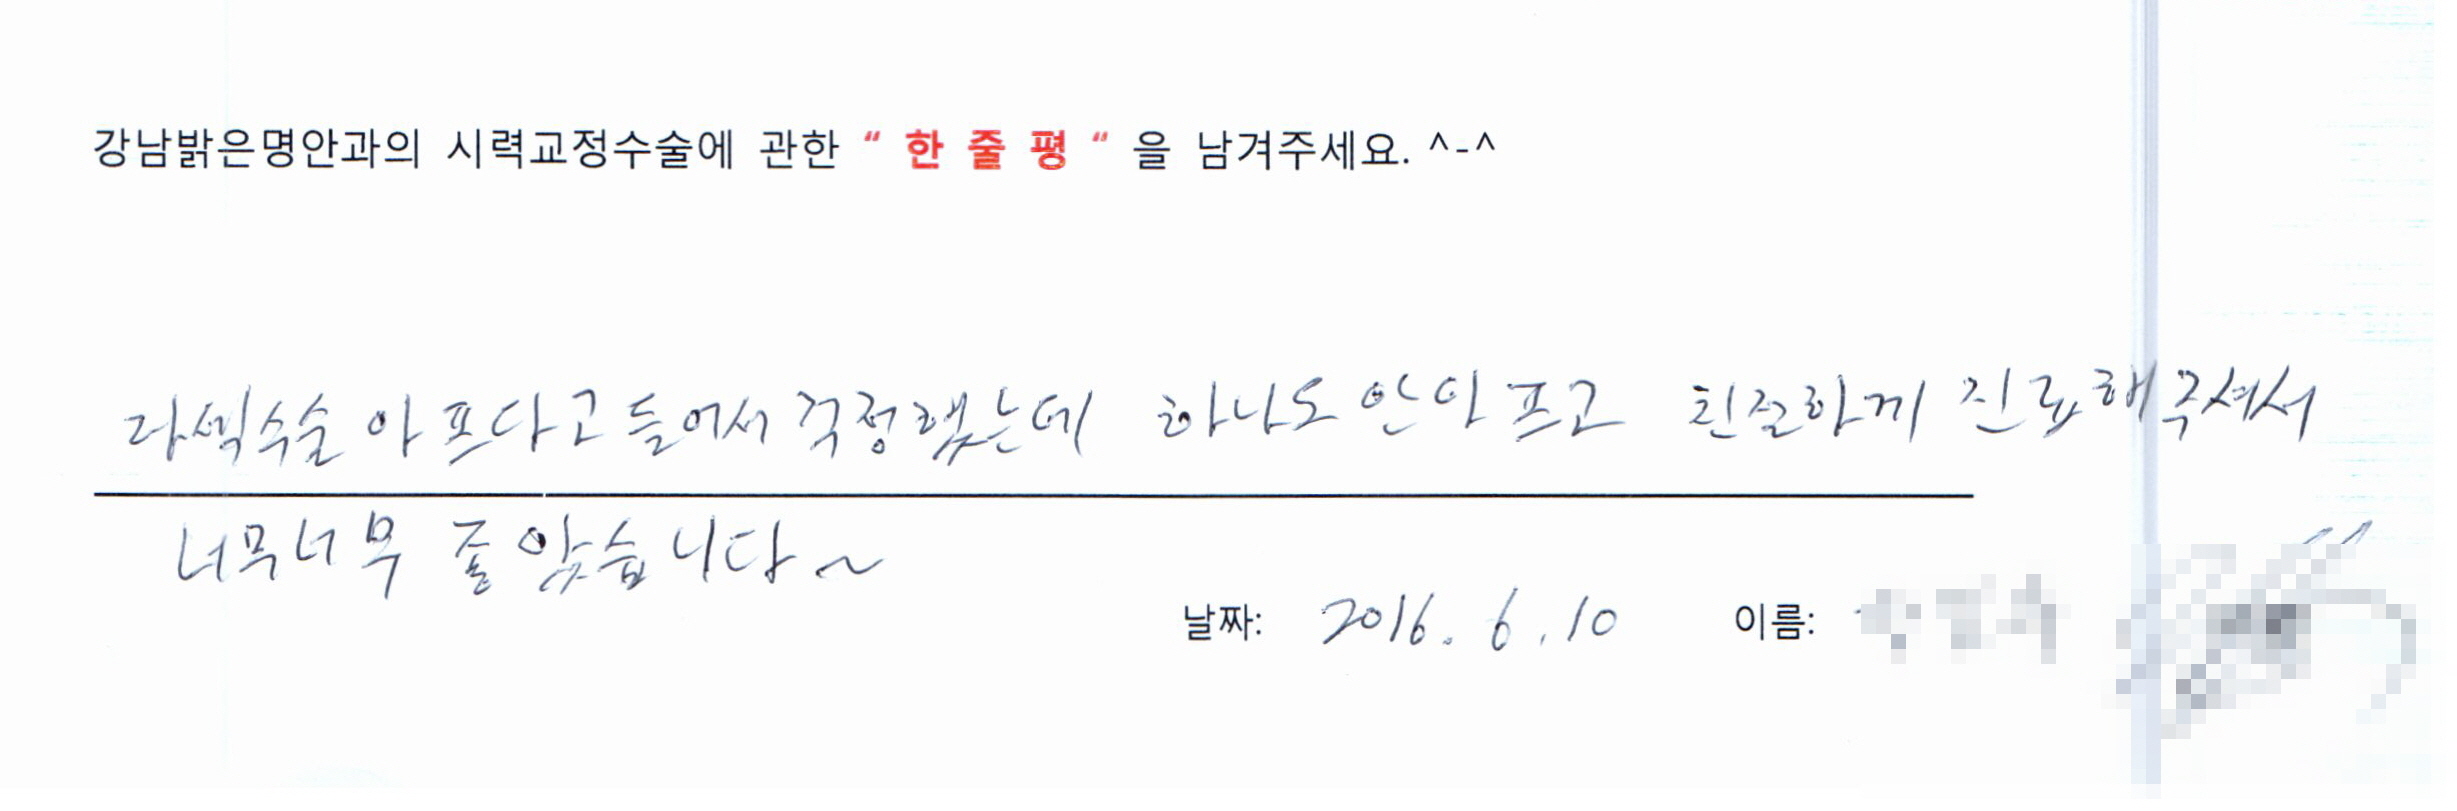 강남밝은명안과의 시력교정수술에 관한 “ 한 줄 평 “ 을 남겨주세요. ^-^
라섹수술 아프다고 들어서 걱정했는데 하나도 안아프고 친절하게 진료해주셔서
너무너무 좋았습니다~
날짜: 2016. 6. 10 이름: